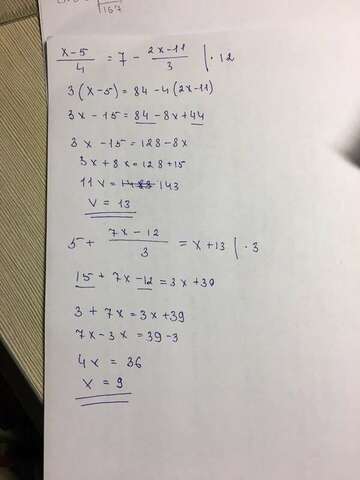 167
x-5/4 = 7 - 2x-11/3 | · 12
3(x-5) = 84-4(2x-11)
3x-15 = 84-8x+44
3x-15 = 128-8x
3x+8x = 128+15
11x = 143
x = 13
5 + 7x-12/3 = x+13 | · 3
15 + 7x-12 = 3x+39
3 + 7x = 3x+39
7x-3x = 39-3
4x = 36
x = 9